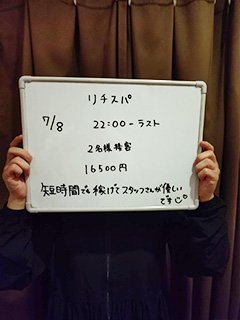 リチスパ
7/8 22:00-ラスト
2名様接客
16500円
短時間でも稼げてスタッフさんが優しい
です